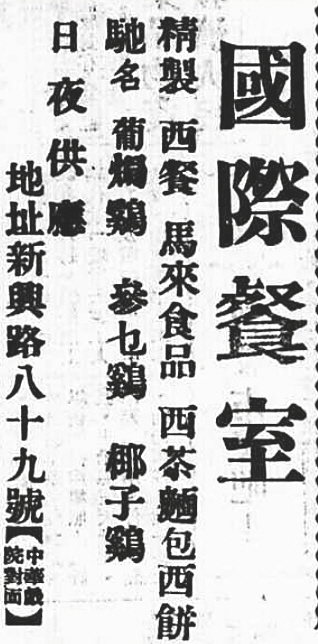 國際餐室
精製 西餐 馬來食品 西茶麵包西餅
馳名 葡焗鷄 參乜鷄 椰子鷄
日夜供應
地址新興路八十九號【中華戲院對面】